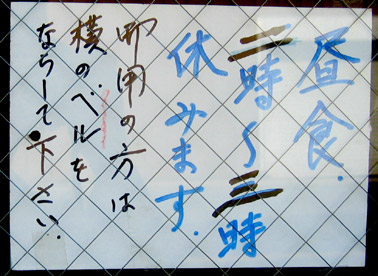 昼食.
二時〜三時
休みます.
御用の方は
横のベルを
ならして下さい.